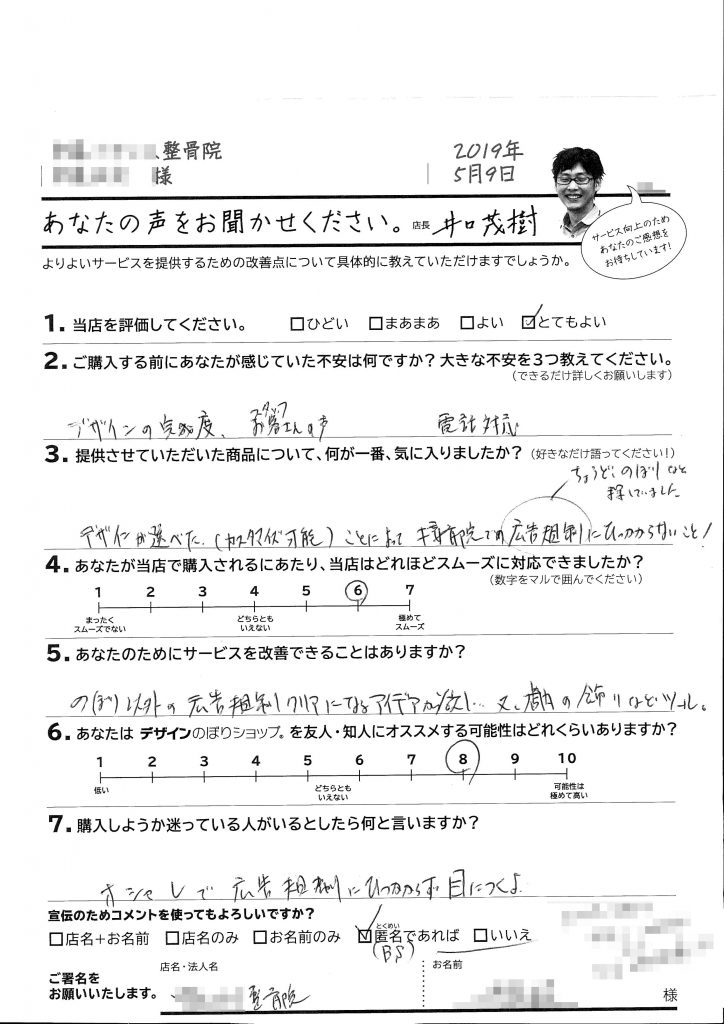 整骨院
様
2019年
5月9日
あなたの声をお聞かせください。 店長 井口茂樹
サービス向上のため
あなたのご感想を
お待ちしています!
よりよいサービスを提供するための改善点について具体的に教えていただけますでしょうか。
1. 当店を評価してください。 □ひどい □まあまあ □よい ☑とてもよい
2. ご購入する前にあなたが感じていた不安は何ですか? 大きな不安を3つ教えてください。
(できるだけ詳しくお願いします)
スタッフ
デザインの完成度、 お客さんの声 電話対応
3. 提供させていただいた商品について、何が一番、気に入りましたか? (好きなだけ語ってください!)
ちょうど、のぼりなど
探していました
デザインが選べた(カスタマイズ可能) ことによって 接骨院での広告規制にひっかからないこと!
4. あなたが当店で購入されるにあたり、当店はどれほどスムーズに対応できましたか?
(数字をマルで囲んでください)
1 2 3 4 5 6 7
まったく
スムーズでない
どちらとも
いえない
極めて
スムーズ
5. あなたのためにサービスを改善できることはありますか?
のぼり以外の広告規制クリアになるアイデアが欲しい… 又、店内の飾りなどツール。
6. あなたは デザインのぼりショップ。を友人・知人にオススメする可能性はどれくらいありますか?
1 2 3 4 5 6 7 8 9 10
低い
どちらとも
いえない
可能性は
極めて高い
7. 購入しようか迷っている人がいるとしたら何と言いますか?
オシャレで 広告規制にひっかからず 目につくよ
宣伝のためコメントを使ってもよろしいですか?
とくめい
□店名+お名前 □店名のみ □お名前のみ ☑匿名であれば □いいえ
ご署名を
お願いいたします。
店名・法人名
整骨院
お名前
様